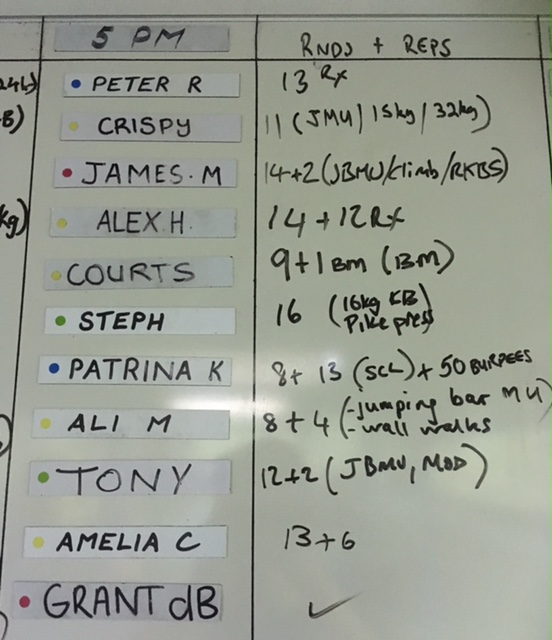 5 PM
RNDS + REPS
PETER R 13 Rx
CRISPY 11 (JMU/15kg/32kg)
JAMES.M 14+2 (JBMU/climb/RKBS)
ALEX.H. 14+12 Rx
COURTS 9+1 BM (BM)
STEPH 16 (16kg KB
Pike press)
PATRINA K 8+13 (SCL) + 50 BURPEES
ALI M 8+4 (-jumping bar MU)
-wall walks
TONY 12+2 (JBMU, MOD)
AMELIA C 13+6
GRANT dB ✓
kg)
B)